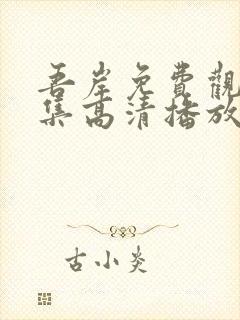 吾岸免費觀
集高清播放
古小炎